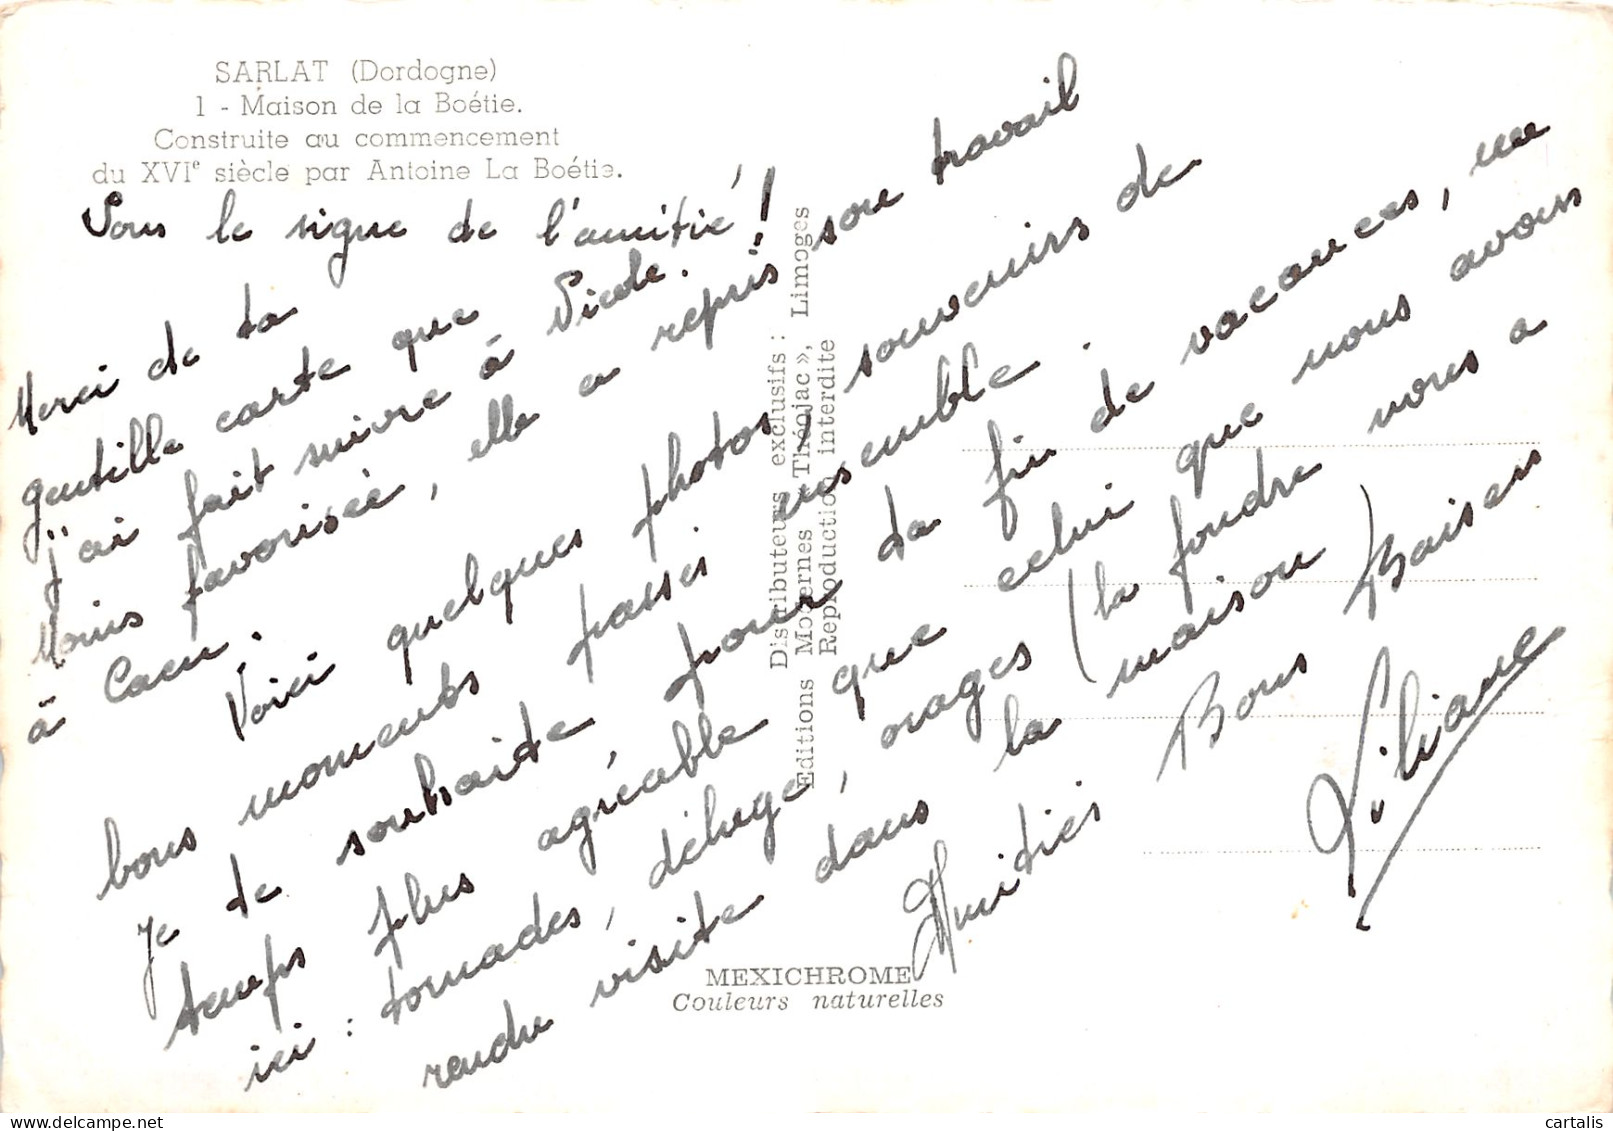 SARLAT (Dordogne)
1 - Maison de la Boétie.
Construite au commencement
du XVIe siècle par Antoine La Boétie.
Sous le signe de l'amitié !
Merci de ta
gentille carte que
j'ai fait suivre à Nicole.
Moins favorisée, elle a repris son travail
à Caen.
Voici quelques photos souvenirs de
bons moments passés ensemble.
Je te souhaite pour ta fin de vacances, un
temps plus agréable que celui que nous avons
ici : tornades, déluge, orages (la foudre nous a
rendu visite dans la maison)
Amitiés Bons Baisers
Liliane
Distributeurs exclusifs :
Editions Modernes « Théojac », Limoges
Reproduction interdite
MEXICHROME
Couleurs naturelles
cartalis